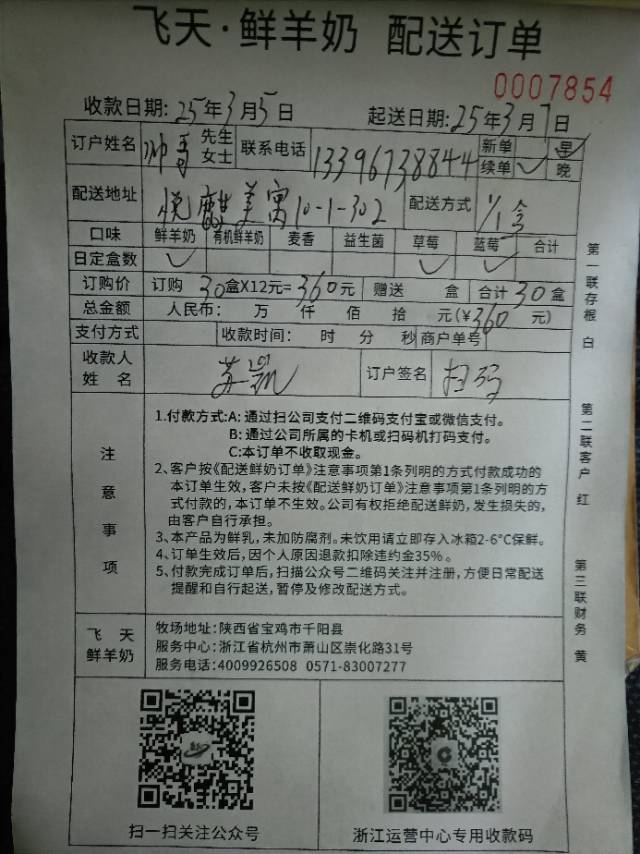 飞天·鲜羊奶 配送订单
0007854
收款日期: 25年3月5日 起送日期: 25年3月7日
订户姓名 帅哥 先生 女士 联系电话 13396738844 新单 续单 ✓ 早 ✓ 晚
配送地址 悦麒美寓10-1-302 配送方式 1/1盒
口味 鲜羊奶 有机鲜羊奶 麦香 益生菌 草莓 蓝莓 合计
日定盒数 ✓ ✓ ✓
订购价 订购 30盒X12元=360元 赠送 盒 合计30盒
总金额 人民币: 万 仟 佰 拾 元(¥360 元)
支付方式 收款时间: 时 分 秒 商户单号
收款人姓名 苏凯 订户签名 扫码
注意事项
1.付款方式:A: 通过扫公司支付二维码支付宝或微信支付。
B: 通过公司所属的卡机或扫码机打码支付。
C:本订单不收取现金。
2、客户按《配送鲜奶订单》注意事项第1条列明的方式付款成功的
本订单生效，客户未按《配送鲜奶订单》注意事项第1条列明的方
式付款的，本订单不生效。公司有权拒绝配送鲜奶，发生损失的，
由客户自行承担。
3、本产品为鲜乳，未加防腐剂。未饮用请立即存入冰箱2-6°C保鲜。
4、订单生效后，因个人原因退款扣除违约金35%。
5、付款完成订单后，扫描公众号二维码关注并注册，方便日常配送
提醒和自行起送，暂停及修改配送方式。
飞天鲜羊奶
牧场地址: 陕西省宝鸡市千阳县
服务中心: 浙江省杭州市萧山区崇化路31号
服务电话: 4009926508 0571-83007277
扫一扫关注公众号 浙江运营中心专用收款码
第一联存根 白
第二联客户 红
第三联财务 黄